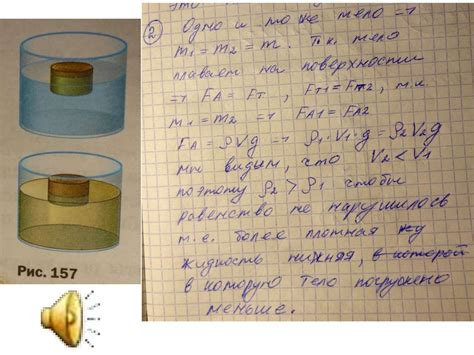 Рис. 157
2
Одно и то же тело =>
m₁ = m₂ = m. Т.к. тело
плавает на поверхности
=> FA = FT, FT1 = FT2, т.к.
m₁ = m₂ => FA1 = FA2
FA = ρVg => ρ₁·V₁·g = ρ₂V₂g
мы видим, что V₂ < V₁
поэтому ρ₂ > ρ₁ чтобы
равенство не нарушилось
т.е. более плотная
жидкость нижняя, в которой
в которую тело погружено
меньше.